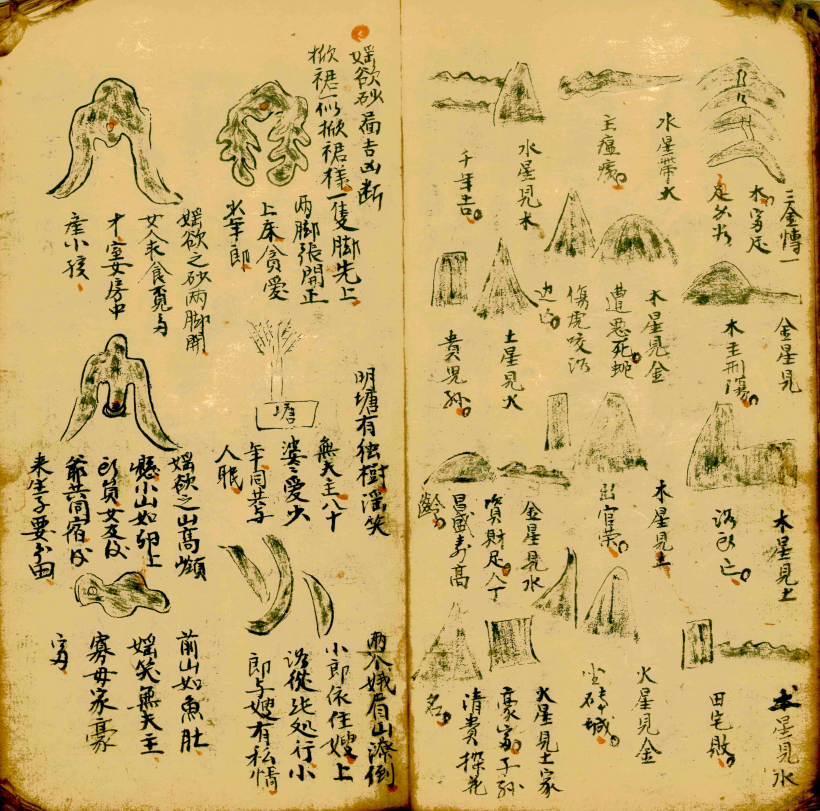 三金博一
水富足
足
水星帶火
主瘟㾮
水星見木
千年吉
金星見
木主刑傷
木星見金
遭惡死蛇
傷虎咬
土星見火
貴児孫
木星見土
木星見土
出官荣
金星見水
資財足人丁
昌盛寿高
本星見水
田宅敗
火星見金
火星見土家
豪富子孫
清貴探花
名
婬欲砂啚吉凶断
掀裙一似掀裙樣一隻脚先上
两脚張開正
上床貪愛
少年郎
婬欲之砂两脚開
女人求食覓
才室女房中
產小孩
明塘有独樹滛笑
無夫主八十
婆愛少
年同共
人眠
塘
婬欲之山高
懸小山如卵上
爺共同宿
来生子要
两个娥眉山潦倒
小郎依住嫂上
行小
郎与嫂有私情
前山如魚肚
婬笑無夫主
寡母家豪
富